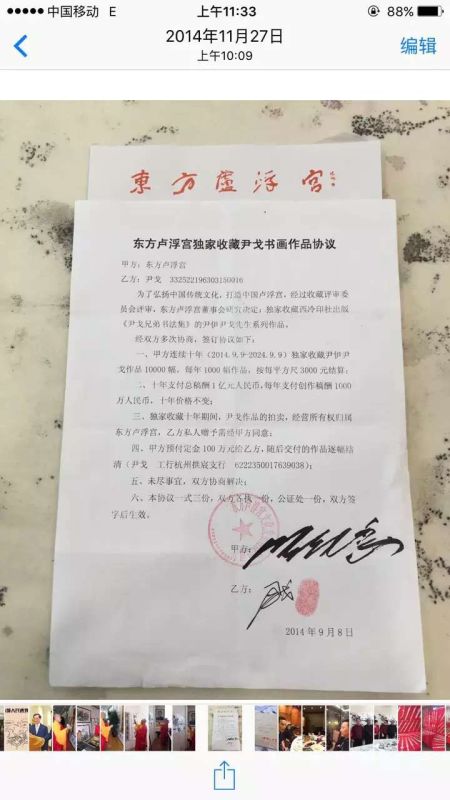 中国移动 E 上午11:33 88%
2014年11月27日
上午10:09
编辑
東方盧浮宮
东方卢浮宫独家收藏尹戈书画作品协议
甲方：东方卢浮宫
乙方：尹戈 332522196303150016
为了弘扬中国传统文化，打造中国卢浮宫，经过收藏评审委
员会评审，东方卢浮宫董事会研究决定：独家收藏西泠印社出版
《尹戈兄弟书法集》的尹伊尹戈先生系列作品。
经双方多次协商，签订协议如下：
一、甲方连续十年（2014.9.9-2024.9.9）独家收藏尹伊尹
戈作品10000幅，每年1000幅作品，按每平方尺3000元结算；
二、十年支付总稿酬1亿元人民币，每年支付创作稿酬1000
万人民币，十年价格不变；
三、独家收藏十年期间，尹戈作品的拍卖，经营所有权归属
东方卢浮宫，乙方私人赠予需经甲方同意；
四、甲方预付定金100万元给乙方，随后交付的作品逐幅结
清（尹戈 工行杭州拱宸支行 6222350017639038）；
五、未尽事宜，双方协商解决；
六、本协议一式三份，双方各执一份，公证处一份，双方签
字后生效。
甲方：
乙方：
2014年9月8日